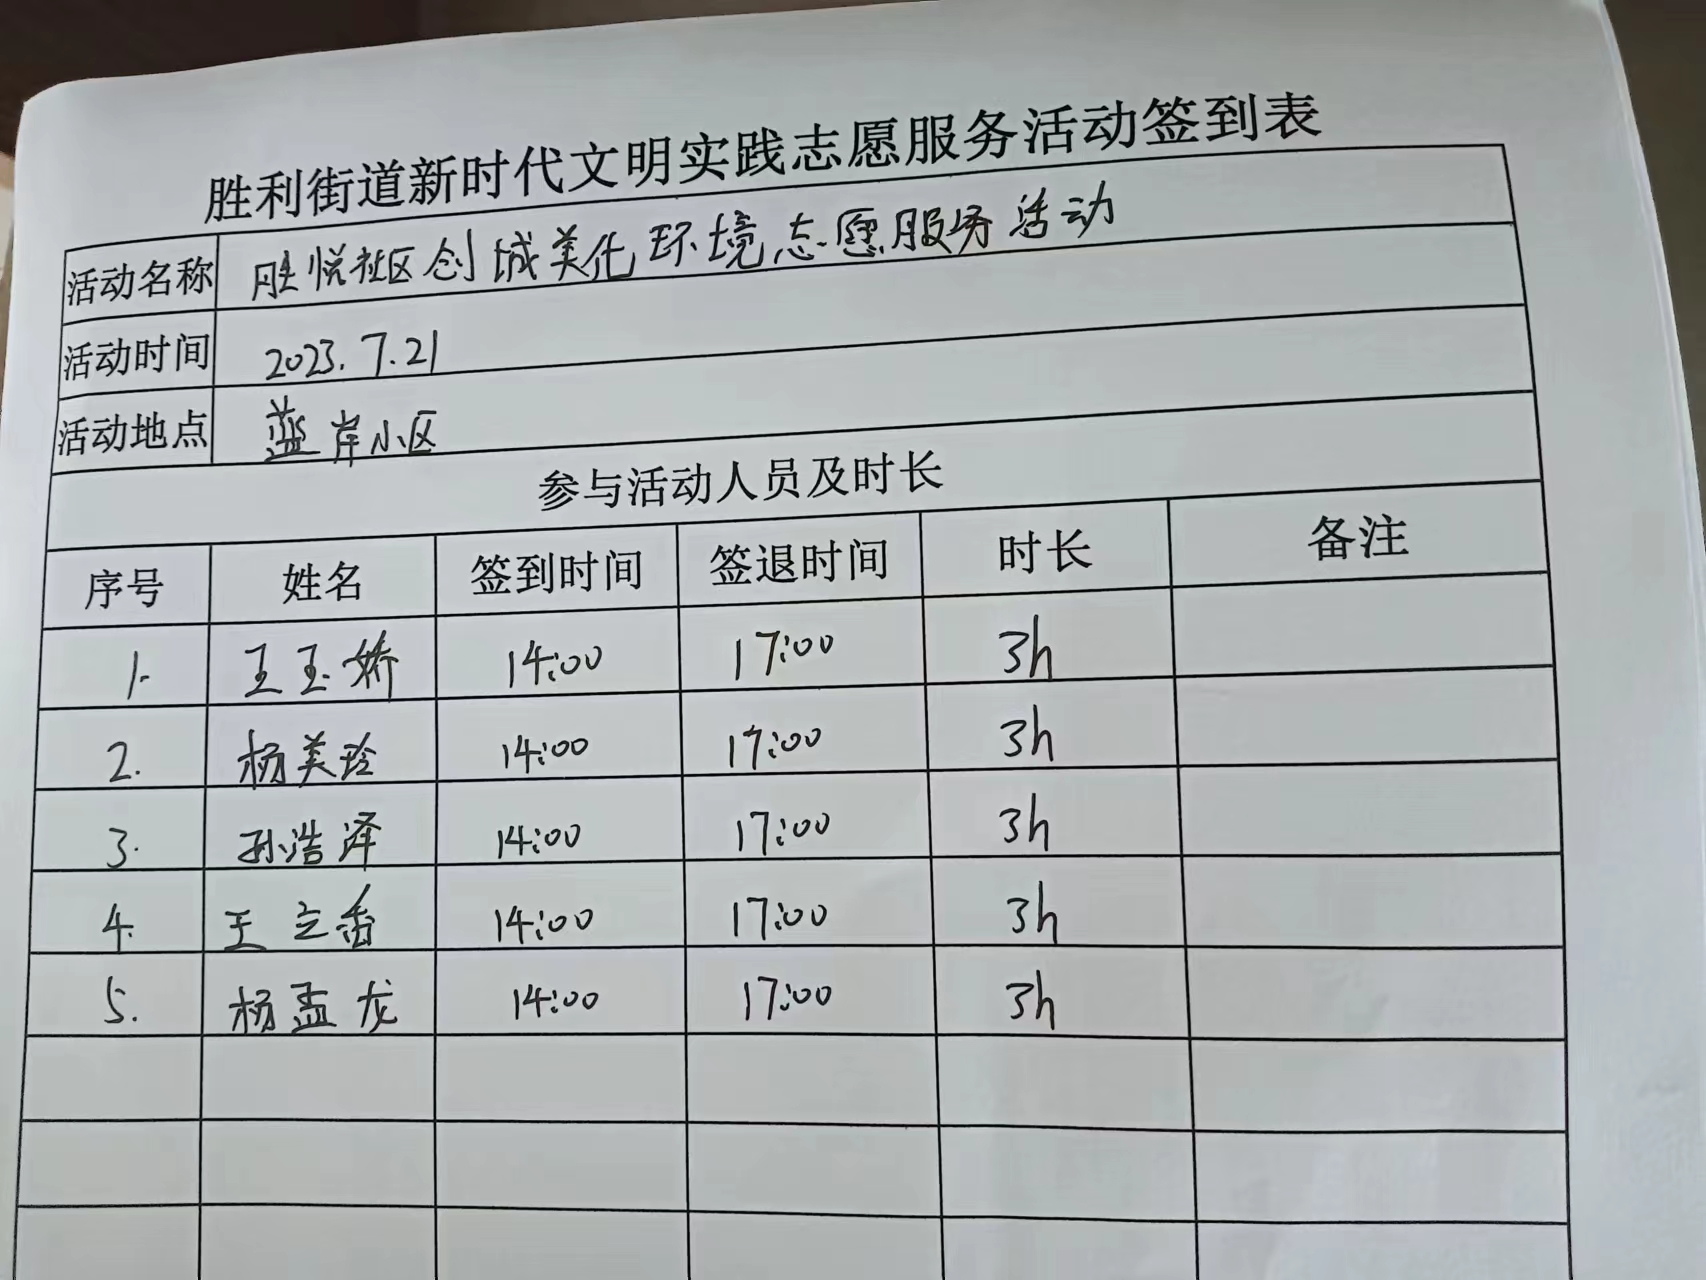 胜利街道新时代文明实践志愿服务活动签到表
活动名称 胜悦社区创城美化环境志愿服务活动
活动时间 2023.7.21
活动地点 蓝岸小区
参与活动人员及时长
序号 姓名 签到时间 签退时间 时长 备注
1. 王玉娇 14:00 17:00 3h
2. 杨美玲 14:00 17:00 3h
3. 孙浩泽 14:00 17:00 3h
4. 王立香 14:00 17:00 3h
5. 杨孟龙 14:00 17:00 3h